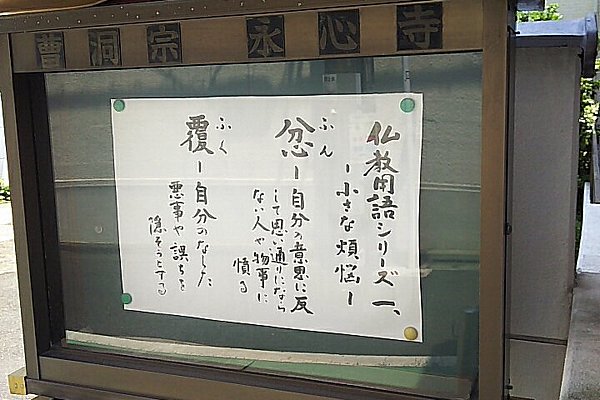 曹洞宗 永心寺
仏教用語シリーズ一、
ー小さな煩悩ー
ふん
忿ー自分の意思に反
して思い通りになら
ない人や物事に
憤る
ふく
覆ー自分のなした
悪事や誤ちを
隠そうとする